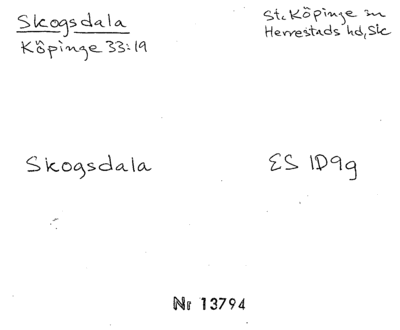 Skogsdala
Köpinge 33:19
St. Köpinge sn
Herrestads hd, Sk
Skogsdala
ES 1D9g
Nr 13794